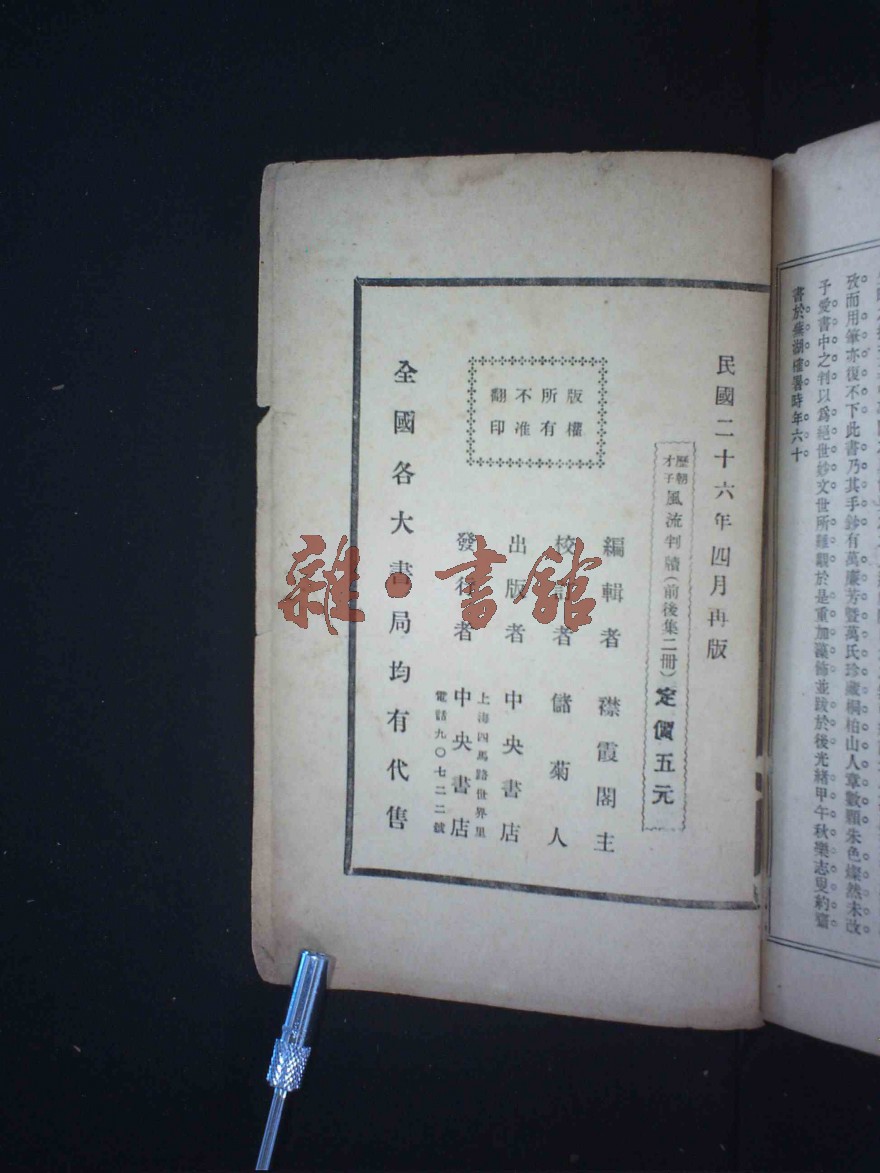 書於蕪湖權署時年六十
予愛書中之判以爲絕世妙文世所難覩於是重加藻飾並跋於後光緒甲午秋樂志叟約齋
攷而用筆亦復不下此書乃其手鈔有萬廉芳暨萬氏珍藏桐柏山人章數顆朱色燦然未改
民國二十六年四月再版
歷朝才子風流判牘(前後集二冊)定價五元
版權
所有
不准
翻印
編輯者 襟霞閣主
校訂者 儲菊人
出版者 中央書店
上海四馬路世界里
發行者 中央書店
電話九〇七二二號
全國各大書局均有代售
雜·書館